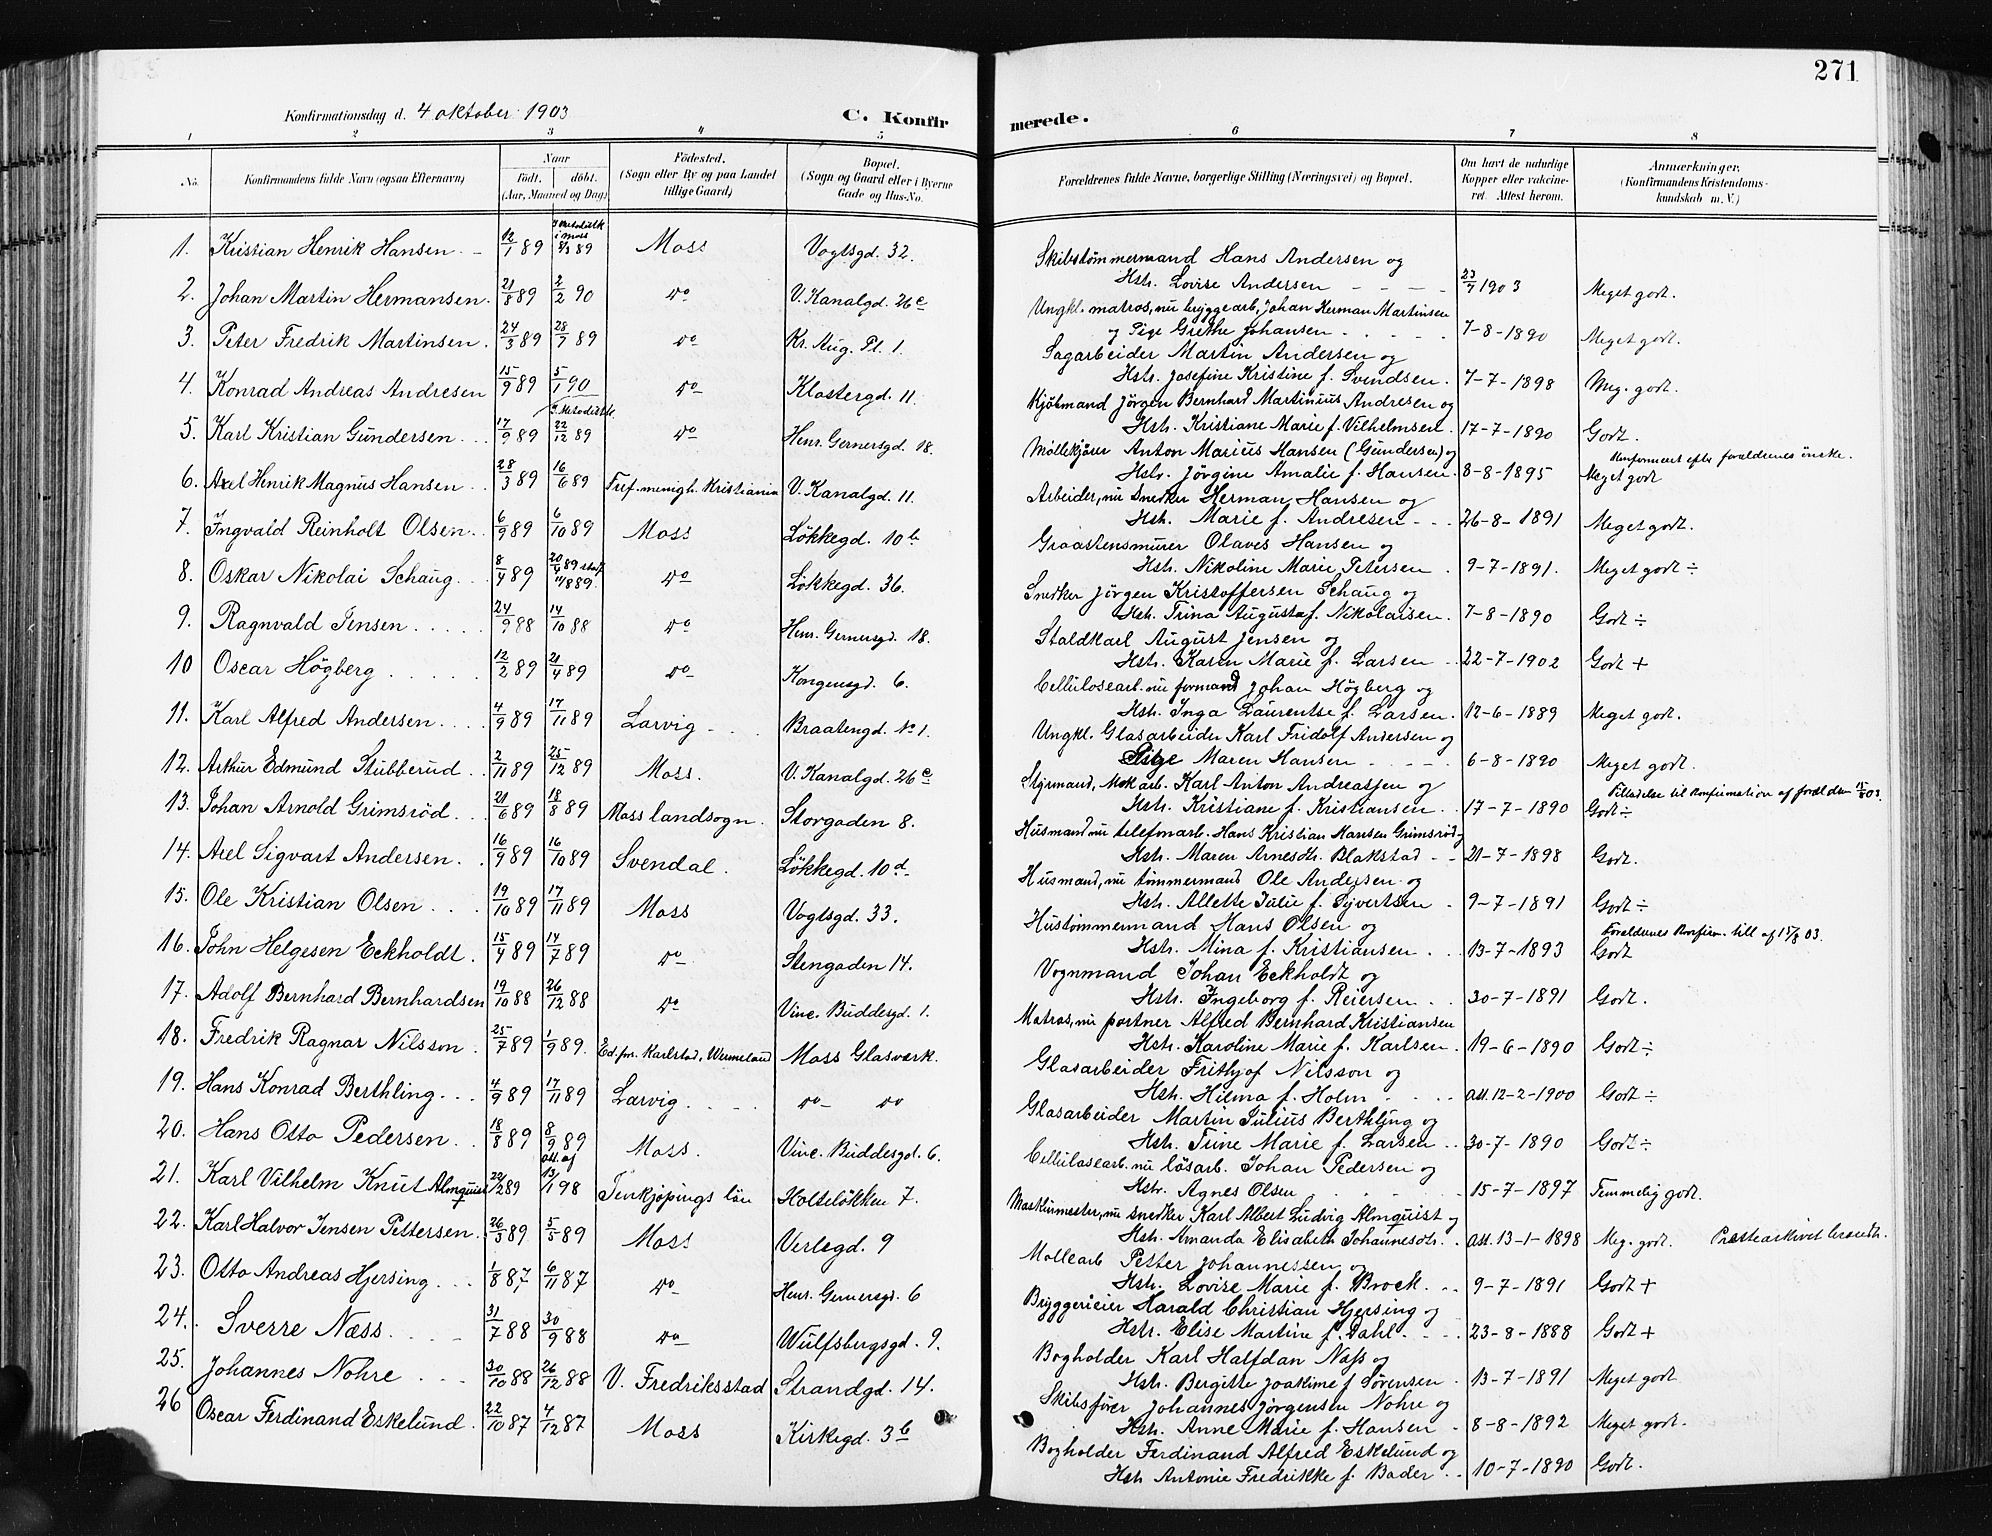 271
Konfirmationsdag d. 4 oktober 1903
C. Konfirmerede.
1 2 3 4 5 6 7 8
No. Konfirmandens fulde Navn (ogsaa Efternavn) Naar født. døbt. (Aar, Maaned og Dag) Födested. (Sogn eller By og paa Landet tillige Gaard) Bopæl. (Sogn og Gaard eller i Byerne Gade og Hus-No. Forældrenes fulde Navne, borgerlige Stilling (Næringsvei) og Bopæl. Om havt de naturlige Kopper eller vakcineret. Attest herom. Anmærkninger. (Konfirmandens Kristendomskundskab m. V.)
1. Kristian Henrik Hansen 12/1 89 i Moss 89 Moss Vogtsgd. 32. Skibstömmermand Hans Andersen og Hstr. Lovise Andersen 23/7 1903 Meget godt.
2. Johan Martin Hermansen. 21/8 89 2/2 90 do V. Kanalgd. 26c Ungkl. matros, nu bryggearb. Johan Herman Martinsen og Pige Grethe Johansen 7-8-1890 Meget godt.
3. Peter Fredrik Martinsen. 24/3 89 28/7 89 do Kr. Aug. Pl. 1. Sagarbeider Martin Andersen og Hstr. Josefine Kristine f. Svendsen. 7-7-1898 Meg. godt.
4. Konrad Andreas Andresen 15/9 89 5/1 90 do Klostergd. 11. Kjötmand Jörgen Bernhard Martinius Andresen og Hstr. Kristiane Marie f. Vilhelmsen. 17-7-1890 Godt.
5. Karl Kristian Gundersen 17/9 89 22/12 89 do Henr. Gernersgd. 18. Möllekjörer Anton Marius Hansen (Gundersen) og Hstr. Jörgine Amalie f. Hansen. 8-8-1895 Meget godt Konfirmeret efter forældrenes önske.
6. Axel Henrik Magnus Hansen 28/3 89 16/6 89 Tref. menigh. Kristiania V. Kanalgd. 11. Arbeider, nu Snedker Herman Hansen og Hstr. Marie f. Andresen 26-8-1891 Meget godt.
7. Ingvald Reinholt Olsen 6/9 89 6/10 89 Moss Løkkegd. 10b Graastensmurer Olaves Hansen og Hstr. Nikoline Marie Petersen. 9-7-1891. Meget godt ÷
8. Oskar Nikolai Schaug 8/4 89 do Løkkegd. 36. Snedker Jörgen Kristoffersen Schaug og Hstr. Trina Augusta f. Nikolaisen. 7-8-1890 Godt ÷
9. Ragnvald Jensen 24/9 88 14/10 88 do Henr. Gernersgd. 18. Staldkarl August Jensen og Hstr. Karen Marie f. Larsen 22-7-1902 Godt +
10 Oscar Högberg 12/2 89 21/4 89 do Kongensgd. 6. Cellulosearb. nu formand Johan Högberg og Hstr. Inga Laurentse f. Larsen. 12-6-1889 Meget godt.
11. Karl Alfred Andersen 4/9 89 17/11 89 Larvig Braatengd. No 1. Ungkl. Glasarbeider Karl Fridolf Andersen og Pige Maren Hansen 6-8-1890 Meget godt.
12. Arthur Edmund Stubberud 2/11 89 25/12 89 Moss. V. Kanalgd. 26c Styrmand, Mek arb. Karl Anton Andreassen og Hstr. Kristiane f. Kristiansen 17-7-1890 Godt ÷ Tilladelse til Konfirmation af forældrene 15/8 03.
13. Johan Arnold Grimsröd 21/6 89 18/8 89 Moss landsogn. Storgaden 8. Husmand nu telefonarb. Hans Kristian Hansen Grimsröd og Hstr. Maren Arnesdtr. Blakstad 21-7-1898 Godt.
14. Axel Sigvart Andersen 16/9 89 16/10 89 Svendal. Løkkegd. 10d Husmand, nu tömmermand Ole Andersen og Hstr. Allette Julie f. Syvertsen 9-7-1891 Godt ÷
15. Ole Kristian Olsen 19/10 89 17/11 89 Moss Vogtsgd. 33. Hustömmermand Hans Olsen og Hstr. Mina f. Kristiansen 13-7-1893 Godt Forældrenes Konfirm. till af 15/8 03.
16. John Helgesen Eckholdt. 15/4 89 14/7 89 do Stengaden 14. Vognmand Johan Eckholdt og Hstr. Ingeborg f. Reiersen 30-7-1891 Godt.
17. Adolf Bernhard Bernhardsen 19/10 88 26/12 88 do Vinc. Buddesgd. 1. Matros, nu portner Alfred Bernhard Kristiansen Hstr. Karoline Marie f. Karlsen 19-6-1890 Godt ÷
18. Fredrik Ragnar Nilsson 25/7 89 1/9 89. Ed. for. Karlstad, Wermeland Moss Glasværk. Glasarbeider Frithjof Nilsson og Hstr. Hilma f. Holm att. 12-2-1900 Godt ÷
19. Hans Konrad Berthling 4/9 89 17/11 89 Larvig do do Glasarbeider Martin Julius Berthling og Hstr. Trine Marie f. Larsen 30-7-1890 Godt ÷
20. Hans Otto Pedersen 18/8 89 8/9 89 Moss. Vinc. Buddesgd. 6. Cellulosearb. nu løsarb. Johan Pedersen og Hstr. Agnes Olsen 15-7-1897 Temmelig godt.
21. Karl Vilhelm Knut Almquist 22/2 89 att. af 13/1 98 Jenkjöpings län Holteløkken 7. Maskinmester, nu snedker Karl Albert Ludvig Almquist og Hstr. Amanda Elisabeth Johannesdtr. att. 13-1-1898 Meg. godt. Prestearkivet brændt.
22. Karl Halvor Jensen Pettersen 26/3 89 5/5 89 Moss Verlegd. 9 Mollearb Petter Johannessen og Hstr. Lovise Marie f. Brock. 9-7-1891 Godt +
23. Otto Andreas Hjersing 1/8 87 6/11 87 do Henr. Gernersgd. 6 Bryggerieier Harald Christian Hjersing og Hstr. Elise Martine f. Dahl. 23-8-1888 Godt +
24. Sverre Næss 31/7 88 30/9 88 do Wulfsbergsgd. 9. Bogholder Karl Halfdan Næss og Hstr. Bergitte Joakime f. Sørensen. 13-7-1891 Meget godt
25. Johannes Nohre 30/10 88 26/12 88 V. Fredriksstad Strandgd. 14. Skibsfører Johannes Jørgensen Nohre og Hstr. Anne Marie f. Hansen 8-8-1892 Meget godt.
26 Oscar Ferdinand Eskelund 22/10 87 4/12 87 Moss Kirkegd. 3b Bogholder Ferdinand Alfred Eskelund og Hstr Antonie Fredrikke f. Bader 10-7-1890 Godt.